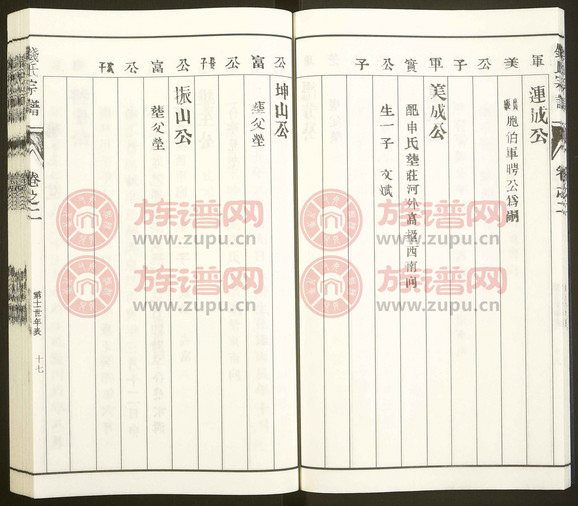 軍美公子
連成公
胞伯軍聘公爲嗣
軍實公子
美成公
配申氏塟莊河外西南向
生一子 文斌
公富公長子
坤山公
塟父塋
公富公子
振山公
塟父塋
錢氏宗譜
卷之二
世年表
十七
族谱网
www.zupu.cn
族谱网
www.zupu.cn
族谱网
www.zupu.cn
族谱网
www.zupu.cn